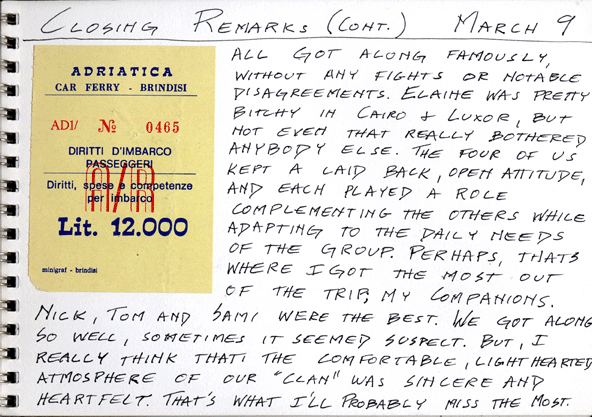 CLOSING REMARKS (CONT.) MARCH 9
ADRIATICA
CAR FERRY - BRINDISI
AD1/ № 0465
DIRITTI D'IMBARCO
PASSEGGERI
A/R
Diritti, spese e competenze
per imbarco
Lit. 12.000
minigraf - brindisi
ALL GOT ALONG FAMOUSLY,
WITHOUT ANY FIGHTS OR NOTABLE
DISAGREEMENTS. ELAINE WAS PRETTY
BITCHY IN CAIRO & LUXOR, BUT
NOT EVEN THAT REALLY BOTHERED
ANYBODY ELSE. THE FOUR OF US
KEPT A LAID BACK, OPEN ATTITUDE,
AND EACH PLAYED A ROLE
COMPLEMENTING THE OTHERS WHILE
ADAPTING TO THE DAILY NEEDS
OF THE GROUP. PERHAPS, THATS
WHERE I GOT THE MOST OUT
OF THE TRIP, MY COMPANIONS.
NICK, TOM AND SAMI WERE THE BEST. WE GOT ALONG
SO WELL, SOMETIMES IT SEEMED SUSPECT. BUT, I
REALLY THINK THAT THE COMFORTABLE, LIGHTHEARTED
ATMOSPHERE OF OUR "CLAN" WAS SINCERE AND
HEARTFELT. THAT'S WHAT I'LL PROBABLY MISS THE MOST.